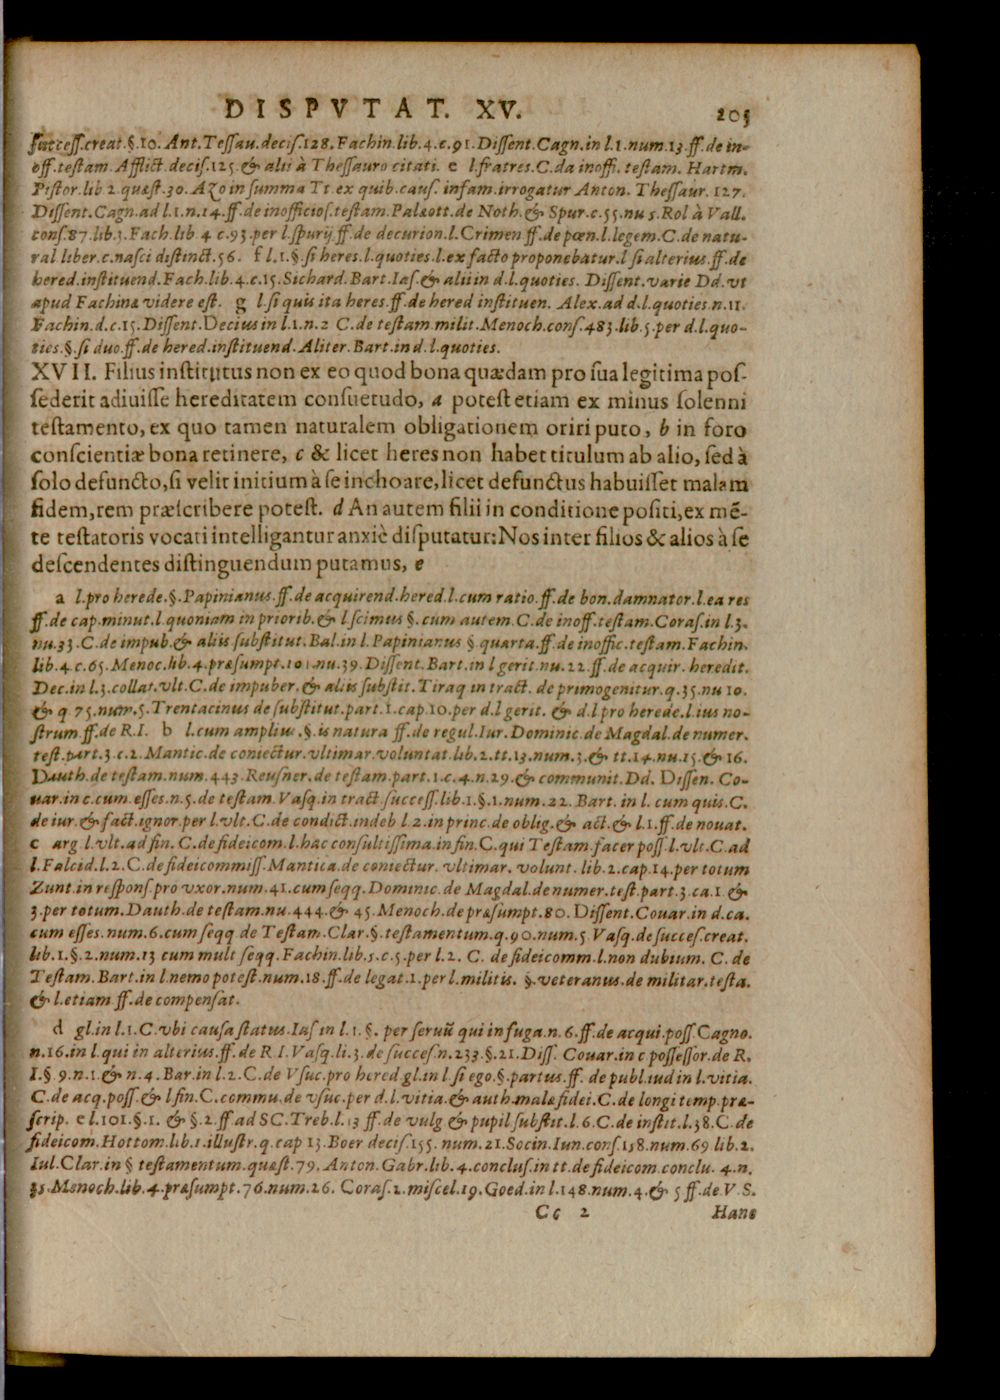 DISPVTAT. XV. 205
success.creat.§.10. Ant.Tessau.decis.128.Fachin.lib.4.c.91.Dissent.Cagn.in l.1.num.13.ff.de in-
off.testam.Afflict.decis.125.& alii à Thessauro citati. e l.fratres.C.da inoffi.testam. Hartm.
Pistor.lib 2.quæst.30.Azo in summa Tt.ex quib.caus.infam.irrogatur Anton. Thessaur.127.
Dissent.Cagn.ad l.1.n.14.ff.de inofficios.testam.Palæott.de Noth.& Spur.c.55.nu 5.Rol à Vall.
cons.87.lib.3.Fach.lib.4 c.93.per l.spurij.ff.de decurion.l.Crimen ff.de pœn.l.legem.C.de natu-
ral liber.c.nasci distinct.56. f l.1.§.si heres.l.quoties.l.ex facto proponebatur.l si alterius.ff.de
hered.instituend.Fach.lib.4.c.15.Sichard.Bart.Ias.& alii in d.l.quoties. Dissent.varie Dd.vt
apud Fachinæ videre est. g l.si quis ita heres.ff.de hered instituen. Alex.ad d.l.quoties.n.11.
Fachin.d.c.15.Dissent.Decius in l.1.n.2 C.de testam.milit.Menoch.cons.483.lib.5.per d.l.quo-
ties.§.si duo.ff.de hered.instituend.Aliter.Bart.in d.l.quoties.
XVII. Filius institutus non ex eo quod bona quædam pro sua legitima pos-
sederit adiuisse hereditatem consuetudo, a potest etiam ex minus solenni
testamento, ex quo tamen naturalem obligationem oriri puto, b in foro
conscientiæ bona retinere, c & licet heres non habet titulum ab alio, sed à
solo defuncto, si velit initium à se inchoare, licet defunctus habuisset malam
fidem, rem præscribere potest. d An autem filii in conditione positi, ex mē-
te testatoris vocati intelligantur anxiè disputatur: Nos inter filios & alios à se
descendentes distinguendum putamus, e
a l.pro herede.§.Papinianus.ff.de acquirend.hered.l.cum ratio.ff.de bon.damnator.l.ea res
ff.de cap.minut.l.quoniam in priorib.& l.scimus §.cum autem.C.de inoff.testam.Coras.in l.3.
nu.33.C.de impub.& aliis substitut.Bal.in l.Papinianus §.quarta.ff.de inoffic.testam.Fachin.
lib.4.c.65.Menoc.lib.4.præsumpt.101.nu.39.Dissent.Bart.in l gerit.nu.22.ff.de acquir.heredit.
Dec.in l.3.collat.vlt.C.de impuber.& aliis substit.Tiraq in tract. de primogenitur.q.35.nu 10.
& q 75.num.5.Trentacinus de substitut.part.1.cap.10.per d.l gerit. & d.l pro herede.l.ius no-
strum.ff.de R.I. b l.cum amplius.§.is natura ff.de regul.Iur.Dominic.de Magdal.de numer.
test.part.3.c.2.Mantic.de coniectur.vltimar.voluntat.lib.2.tt.13.num.3.& tt.14.nu.15.& 16.
Dauth.de testam.num.443.Reusner.de testam.part.1.c.4.n.29.& communit.Dd. Dissen. Co-
uar.in c.cum esses.n.5.de testam.Vasq.in tract.success.lib.1.§.1.num.22. Bart.in l. cum quis.C.
de iur.& fact.ignor.per l.vlt.C.de condict.indeb l.2.in princ.de oblig.& act.& l.1.ff.de nouat.
c arg l.vlt.ad fin. C.de fideicom.l.hac consultissima.in fin.C.qui Testam.facer poss.l.vlt.C.ad
l.Falcid.l.2.C.de fideicommiss.Mantica.de coniectur. vltimar. volunt.lib.2.cap.14.per totum
Zunt.in respons.pro vxor.num.41.cum seqq. Dominic. de Magdal.de numer.test.part.3.ca.1.&
3.per totum.Dauth.de testam.nu.444.& 45.Menoch.de præsumpt.80. Dissent.Couar.in d.ca.
cum esses.num.6.cum seqq de Testam.Clar.§.testamentum.q.90.num.5 Vasq.de succes.creat.
lib.1.§.2.num.13 cum mult seqq.Fachin.lib.5.c.5.per l.2. C. de fideicomm.l.non dubium. C. de
Testam.Bart.in l nemo potest.num.18.ff.de legat.1.per l.militis. §.veteranus.de militar.testa.
& l.etiam ff.de compensat.
d gl.in l.1.C.vbi causa status.Ias in l.1.§. per seruū qui in fuga.n.6.ff.de acqui.poss.Cagno.
n.16.in l.qui in alterius.ff.de R I.Vasq.li.3.de succes.n.233.§.21.Diss. Couar.in c possessor.de R.
I.§ 9.n.1.& n.4.Bar.in l.2.C.de Vsuc.pro hered gl.in l si ego.§.partus.ff. de publ.iud in l.vitia.
C.de acq.poss.& l fin.C.commu.de vsuc.per d.l.vitia.& auth.malæ fidei.C.de longi temp.præ-
scrip. e l.101.§.1. & §.2.ff.ad SC.Treb.l.13 ff.de vulg & pupil substit.l.6.C.de instit.l.38.C.de
fideicom.Hottom.lib.1.illustr.q.cap 13.Boer decis.155.num.21.Socin.Iun.cons.158.num.69 lib.2.
Iul.Clar.in § testamentum.quæst.79.Anton.Gabr.lib.4.conclus.in tt.de fideicom.conclu. 4.n.
35.Menoch.lib.4.præsumpt.76.num.26. Coras.2.miscel.19.Goed.in l.148.num.4.& 5 ff.de V.S.
Cc 2 Hanc